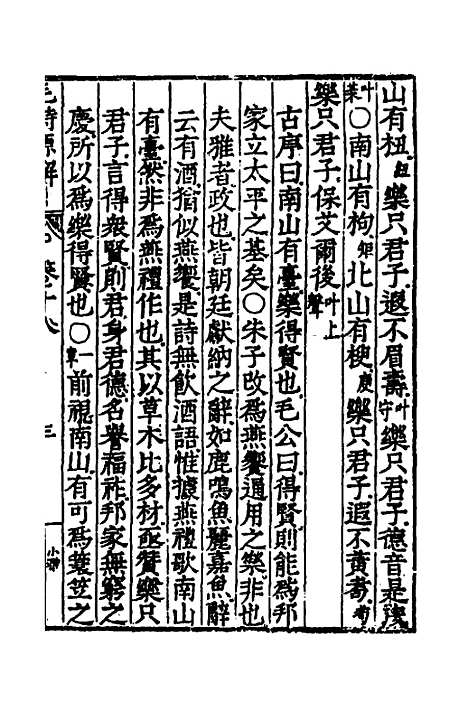 山有杻樂只君子遐不眉壽叶守樂只君子德音是茂
叶○南山有枸矩北山有楰庾樂只君子遐不黃耇苟
樂只君子保艾爾後叶上聲
古序曰南山有臺樂得賢也毛公曰得賢則能爲邦
家立太平之基矣○朱子改爲燕饗通用之樂非也
夫雅者政也皆朝廷獻納之辭如鹿鳴魚麗嘉魚辭
云有酒猶似燕饗是詩無飲酒語惟據燕禮歌南山
有臺然非爲燕禮作也其以草木比多材亟贊樂只
君子言得衆賢則君身君德名譽福祚邦家無窮之
慶所以爲樂得賢也○一章前視南山有可爲蓑笠之
毛詩原解 卷十八 三 小雅